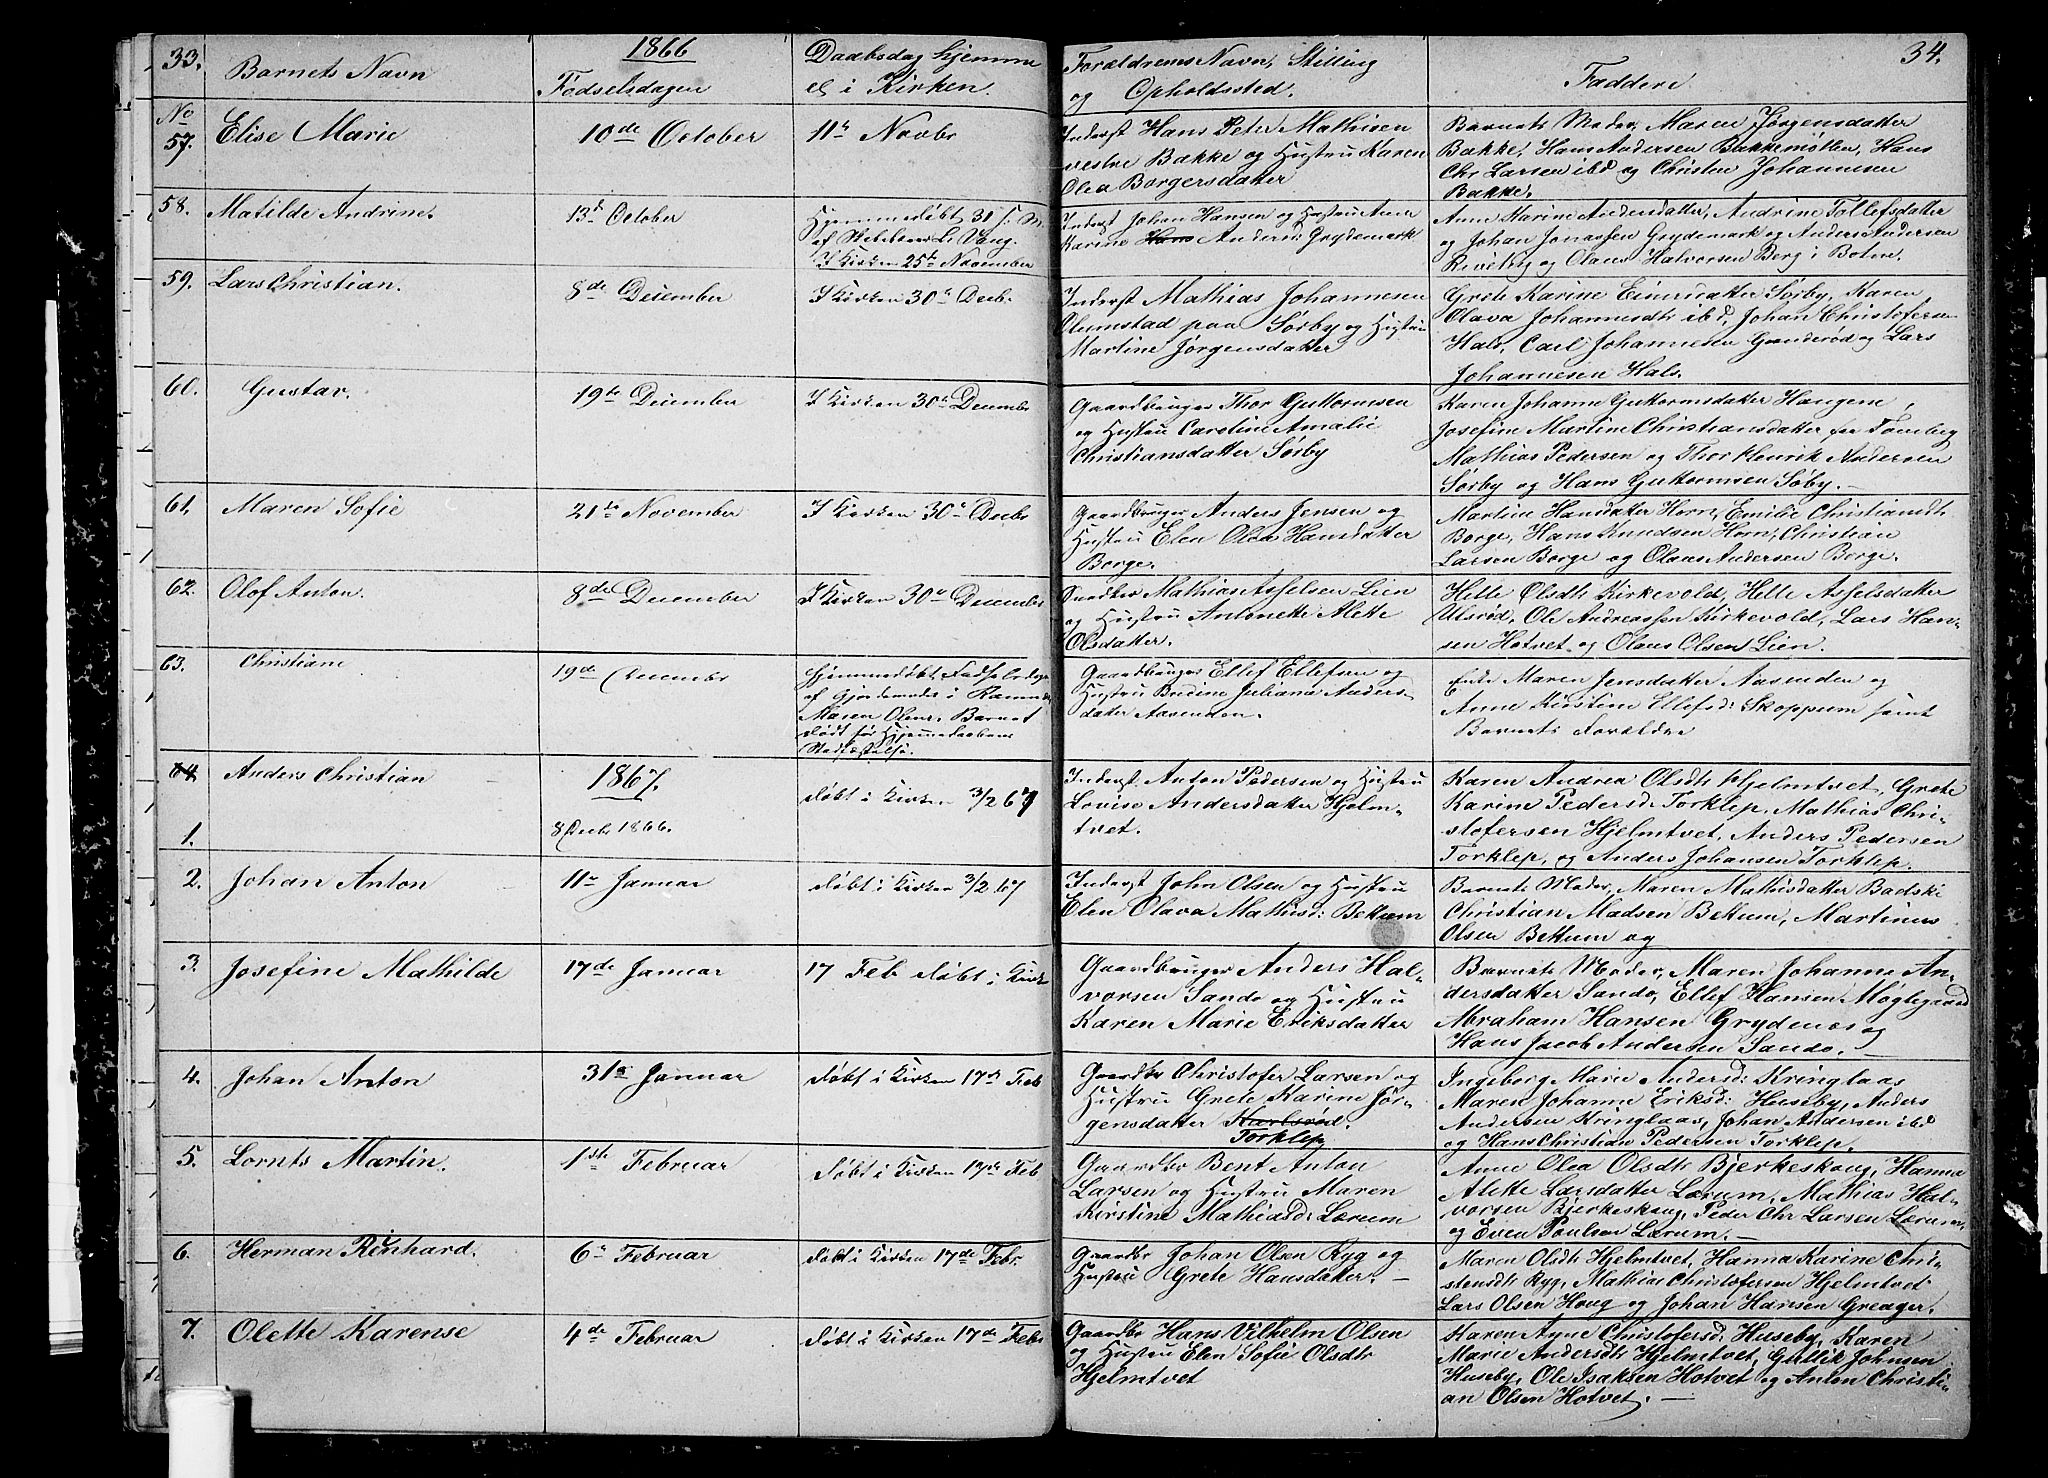 33.
Barnets Navn
1866
Fødselsdagen
Daabsdag hjemme
el i Kirken.
Forældrenes Navn, Stilling
og Opholdssted.
Faddere
34.
No
57.
Elise Marie
10de October
11te Novbr
Inderst Hans Peter Mathisen
vestre Bakke og Hustru Karen
Olea Borgersdatter
Barnets Moder, Maren Jørgensdatter
Bakke, Hans Andersen Bakkemøllen, Hans
Chr Larsen ibd og Christen Johannesen
Bakke.
58.
Matilde Andrine.
13de October
Hjemmedøbt 31
af L. Vang.
I Kirken 25te November
Inderst Johan Hansen og Hustru Anne
Karine Hans Andersd: Grydemark
Anne Marine Andersdatter, Andrine Tollefsdatter
og Johan Jonassen Grydemark og Anders Andersen
og Olaus Halvorsen Berg i Botne.
59.
Lars Christian.
8de December
I Kirken 30te Decb.
Inderst Mathias Johannesen
Olumstad paa Sørby og Hustru
Martine Jørgensdatter
Grete Karine Sørby, Karen
Olava Johannesdtr ibd, Johan Christofersen
Hals, Carl Johannesen og Lars
Johannesen Hals.
60.
Gustav.
19de December
I Kirken 30te Decembr
Gaardbruger Thor Guttormsen
og Hustru Caroline Amalie
Christiansdatter Sørby
Karen Johanne Guttormsdatter Haugene,
Josefine Martine Christiansdatter
Mathias Pedersen og Thor Henrik Andersen
Sørby og Hans Guttormsen Søby.—
61.
Maren Sofie
21de November
I Kirken 30te Decbr
Gaardbruger Anders Jensen og
Hustru Elen Olea Hansdatter
Borge.
Martine Hansdatter Horn, Emilie Christiansdt
Borge, Hans Knudsen Horn, Christian
Larsen Borge og Olaus Andersen Borge.
62.
Olof Anton.
8de December
I Kirken 30te December
Mathias Asselsen Lien
og Hustru Antonette Alette
Olsdatter.
Helle Olsdtr Kirkevold, Helle Asselsdatter
Ulsrød, Ole Andreassen Kirkevold, Lars Han-
sen Hotvet og Olaus Olsen Lien.
63.
Christiane
19de December
Hjemmedøbt Fødselsdagen
af Gjordemoder i Ramnæs
Maren Olsen. Barnet
dødt før Hjemmedaabens
Stadfæstelse.
Gaardbruger Ellef Ellefsen og
Hustru Bredine Juliane Anders-
datter Aasenden.
Enke Maren Jensdatter Aasenden og
Anne Kirstine Ellefsd: Skoppum samt
Barnets Forældre
64.
1.
Anders Christian
1867.
8 Decb 1866.
døbt i Kirken 3/2 67
Inderst Anton Pedersen og Hustru
Lovise Andersdatter Hjelm-
tvet.
Karen Andrea Olsdtr Hjelmtvet, Grete
Karine Pedersd: Torklep, Mathias Chri-
stofersen Hjelmtvet, Anders Pedersen
Torklep, og Anders Johansen Torklep.
2.
Johan Anton
11te Januar
døbt i Kirken 3/2 67
Inderst John Olsen og Hustru
Elen Olava Mathisd: Bettum
Barnets Moder, Maren Mathisdatter Badski
Christian Madsen Bettum, Martinus
Olsen Bettum og
3.
Josefine Mathilde
17de Januar
17 Feb døbt i Kirk
Gaardbruger Anders Hal-
vorsen Sando og Hustru
Karen Marie Eriksdatter
Barnets Moder, Maren Johanne An-
dersdatter Sando, Ellef Hansen Møglegaard
Abraham Hansen Grydenos og
Hans Jacob Andersen Sando.—
4.
Johan Anton
31te Januar
døbt i Kirken 17de Feb
Gaardbr Christofer Larsen og
Hustru Grete Karine Jør-
gensdatter Karlsrød.
Torklep
Ingeborg Marie Andersd: Kringlaas
Maren Johanne Eriksd: Huseby, Anders
Andersen Kringlaas, Johan Andersen ibd
og Hans Christian Pedersen Torklep.
5.
Lornts Martin.
1ste Februar
døbt i Kirken 17de Feb
Gaardbr Bent Anton
Larsen og Hustru Maren
Kirstine Mathiasd: Lørum
Anne Olea Olsdtr Bjerkeskoug, Hanna
Alette Larsdatter Lørum, Mathias Hal-
vorsen Bjerkeskoug, Peder Chr Larsen Lørum
og Even Poulsen Lørum.—
6.
Herman Reinhard.
6te Februar
døbt i Kirken 17de Febr.
Gaardbr Johan Olsen Ryg og
Hustru Grete Hansdatter.—
Maren Olsdtr Hjelmtvet, Hanna Karine Chri-
stensdtr Ryg, Mathias Christofersen Hjelmtvet
Lars Olsen Houg og Johan Hansen Greager.
7.
Olette Karense
4de Februar
døbt i Kirken 17de Febr
Gaardbr Hans Vilhelm Olsen
og Hustru Elen Sofie Olsdtr
Hjelmtvet
Karen Anne Christofersd: Huseby, Karen
Marie Andersdtr Hjelmtvet, Gullik Johnsen
Huseby, Ole Isaksen Hotvet og Anton Christi-
an Olsen Hotvet.—